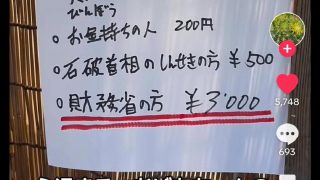 びんぼう
○ お金持ちの人 200円
○ 石破首相のしんせきの方 ¥500
○ 財務省の方 ¥3'000
5,748
693